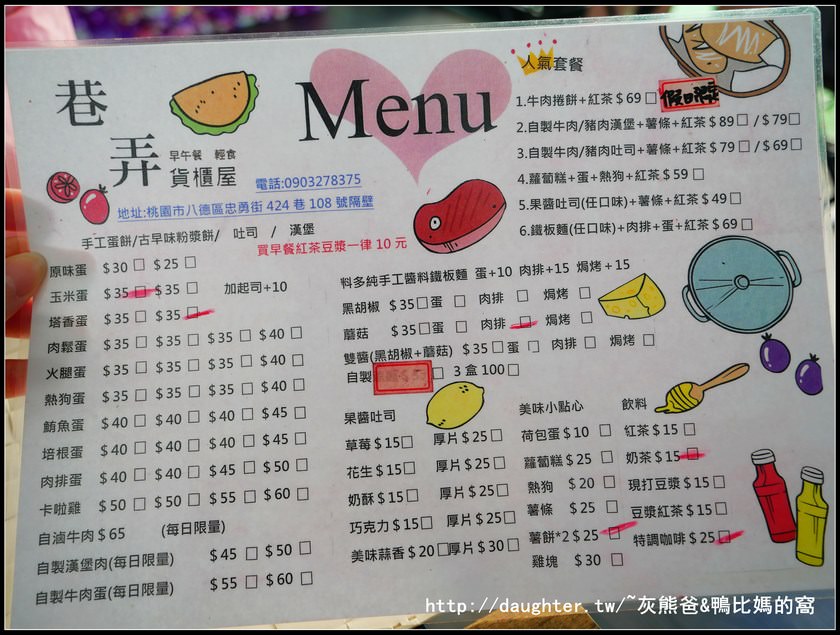 巷弄
早午餐 輕食
貨櫃屋
電話:0903278375
地址:桃園市八德區忠勇街 424 巷 108 號隔壁
Menu
人氣套餐
1.牛肉捲餅+紅茶$69□
2.自製牛肉/豬肉漢堡+薯條+紅茶$89□ /$79□
3.自製牛肉/豬肉吐司+薯條+紅茶$79□ /$69□
4.蘿蔔糕+蛋+熱狗+紅茶$59 □
5.果醬吐司(任口味)+薯條+紅茶$49□
6.鐵板麵(任口味)+肉排+蛋+紅茶$69□
手工蛋餅/古早味粉漿餅/ 吐司 / 漢堡
買早餐紅茶豆漿一律 10 元
原味蛋 $30 □ $25 □
玉米蛋 $35 □ $35 □ 加起司+10
塔香蛋 $35 □ $35 □
肉鬆蛋 $35 □ $35 □ $35 □ $40 □
火腿蛋 $35 □ $35 □ $35 □ $40 □
熱狗蛋 $35 □ $35 □ $35 □ $40 □
鮪魚蛋 $40 □ $40 □ $40 □ $45 □
培根蛋 $40 □ $40 □ $40 □ $45 □
肉排蛋 $40 □ $40 □ $45 □ $50 □
卡啦雞 $50 □ $50 □ $55 □ $60 □
自滷牛肉$65 (每日限量)
自製漢堡肉(每日限量) $45 □ $50 □
自製牛肉蛋(每日限量) $55 □ $60 □
料多純手工醬料鐵板麵 蛋+10 肉排+15 焗烤+15
黑胡椒 $35□蛋 □ 肉排 □ 焗烤 □
蘑菇 $35□蛋 □ 肉排 □ 焗烤 □
雙醬(黑胡椒+蘑菇) $35□蛋 □ 肉排 □ 焗烤 □
自製 □ 3 盒 100□
果醬吐司
草莓$15□ 厚片$25□
花生$15□ 厚片$25□
奶酥$15□ 厚片$25□
巧克力$15□ 厚片$25□
美味蒜香$20□厚片$30□
美味小點心
荷包蛋$10 □
蘿蔔糕$25 □
熱狗 $20 □
薯條 $25 □
薯餅*2$25 □
雞塊 $30 □
飲料
紅茶$15 □
奶茶$15□
現打豆漿$15□
豆漿紅茶$15□
特調咖啡$25□
http://daughter.tw/~灰熊爸&鴨比媽的窩